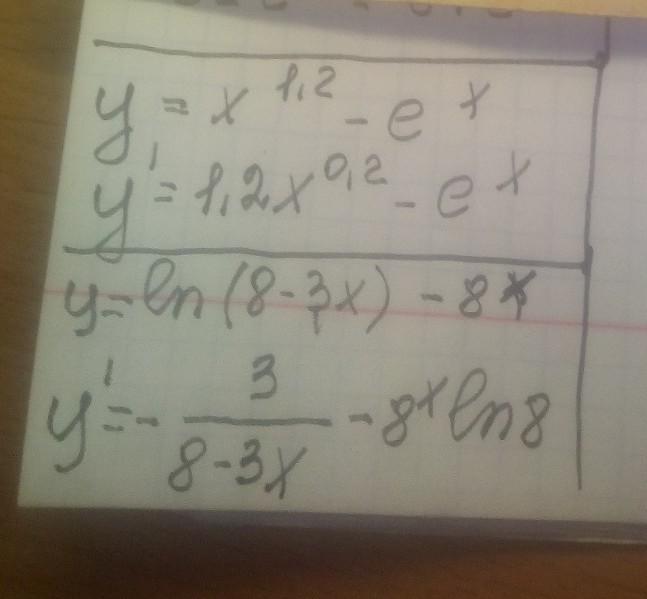 y = x^1,2 - e^x
y' = 1,2x^0,2 - e^x
y = ln(8-3x) - 8^x
y' = - 3/(8-3x) - 8^x ln8